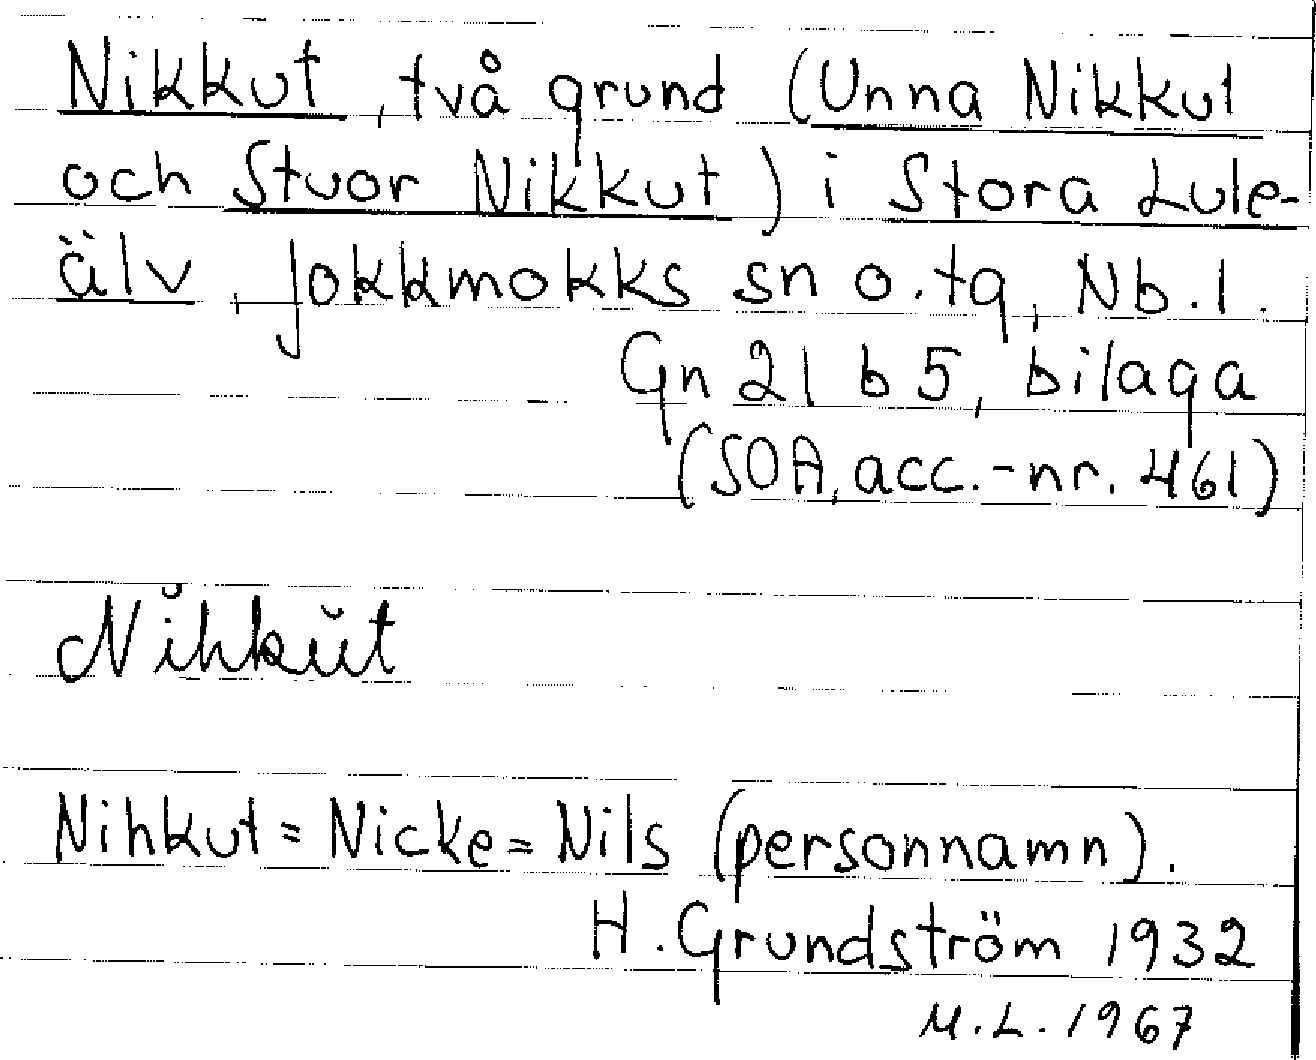 Nikkut, två grund (Unna Nikkut
och Stuor Nikkut) i Stora Lule-
älv, Jokkmokks sn o. tg, Nb. l.
Gn 21 b 5, bilaga
(SOA, acc.-nr. 461)
Nĭhkŭt
Nihkut = Nicke = Nils (personnamn).
H. Grundström 1932
M.L. 1967